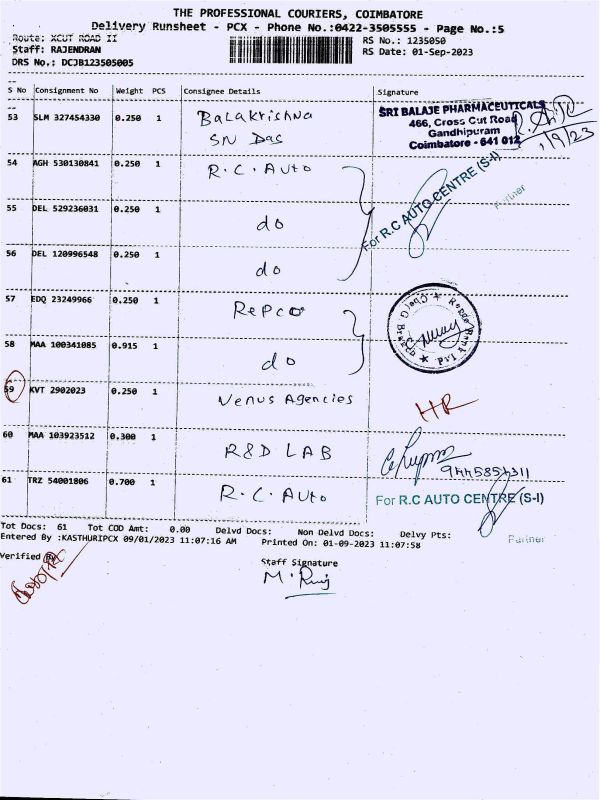 THE PROFESSIONAL COURIERS, COIMBATORE
Delivery Runsheet - PCX - Phone No.:0422-3505555 - Page No.:5
Route: XCUT ROAD II
RS No.: 1235050
Staff: RAJENDRAN
RS Date: 01-Sep-2023
DRS No.: DCJB123505005
S No Consignment No Weight PCS Consignee Details Signature
53 SLM 327454330 0.250 1 Balakrishna
SN Das
SRI BALAJE PHARMACEUTICALS
466, Cross Cut Road
Gandhipuram
Coimbatore - 641 012
1/9/23
54 AGH 530130841 0.250 1 R.C. Auto
For R.C AUTO CENTRE (S-I)
Partner
55 DEL 529236031 0.250 1 do
56 DEL 120996548 0.250 1 do
57 EDQ 23249966 0.250 1 Repco
58 MAA 100341085 0.915 1 do
59 KVT 2902023 0.250 1 Venus Agencies
HR
60 MAA 103923512 0.300 1 R&D LAB
9445854311
61 TRZ 54001806 0.700 1 R.C. Auto
For R.C AUTO CENTRE (S-I)
Partner
Tot Docs: 61 Tot COD Amt: 0.00 Delvd Docs: Non Delvd Docs: Delvy Pts:
Entered By :KASTHURIPCX 09/01/2023 11:07:16 AM Printed On: 01-09-2023 11:07:58
Verified By
Staff Signature